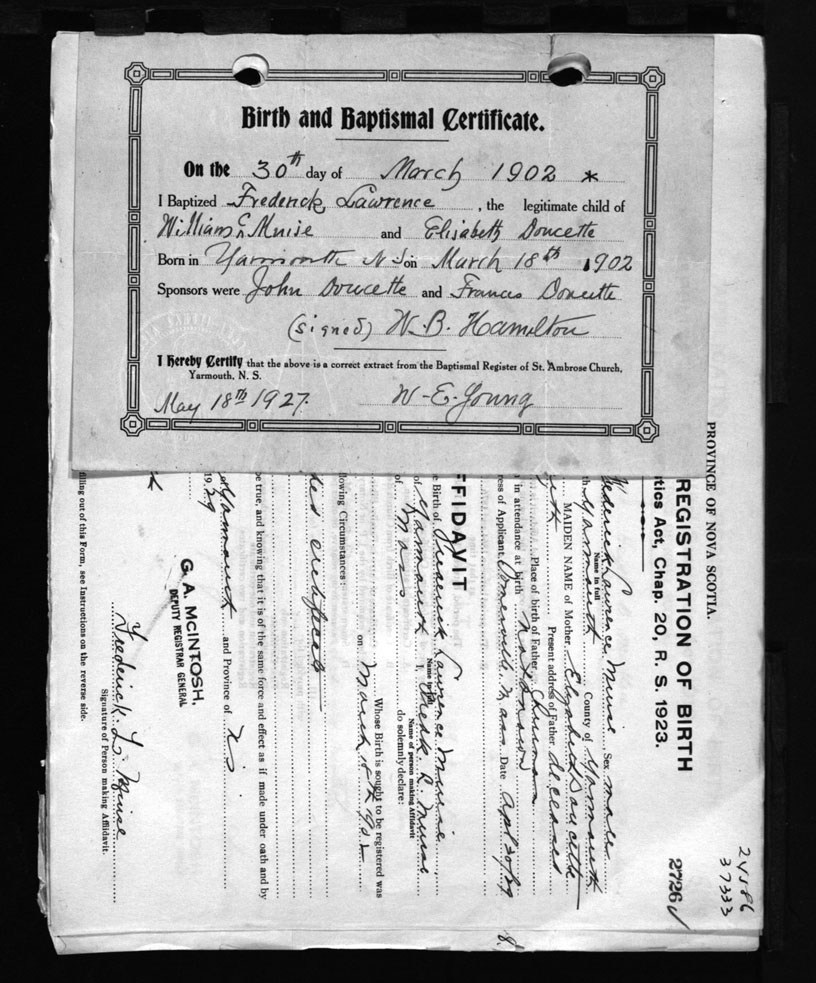 Birth and Baptismal Certificate.
On the 30th day of March 1902 *
I Baptized Frederick Lawrence, the legitimate child of
William E. Muise and Elisabeth Doucette
Born in Yarmouth N S on March 18th 1902
Sponsors were John Doucette and Frances Doucette
(signed) W. B. Hamilton
I Hereby Certify that the above is a correct extract from the Baptismal Register of St. Ambrose Church,
Yarmouth, N. S.
May 18th 1927. W-E-Young
PROVINCE OF NOVA SCOTIA.
24586
37333
REGISTRATION OF BIRTH
27126
tics Act, Chap. 20, R. S. 1923.
Frederick Lawrence Muise Sex male
Name in full
th Yarmouth County of Yarmouth
MAIDEN NAME of Mother Elizabeth Doucette
Present address of Father deceased
Place of birth of Father
in attendance at birth
ress of Applicant Somerville, Mass Date Apl 20/29
FFIDAVIT
e Birth of Frederick Lawrence Muise
Name in full
of Yarmouth I, Fredk. L. Muise
Name of person making Affidavit
of Mass do solemnly declare:
Whose Birth is sought to be registered was
on March 18th 1902
llowing Circumstances:
des certificate
be true, and knowing that it is of the same force and effect as if made under oath and by
Yarmouth and Province of N S
1929
G. A. MCINTOSH,
DEPUTY REGISTRAR GENERAL
Frederick. L. Muise
Signature of Person making Affidavit.
filling out of this Form, see Instructions on the reverse side.